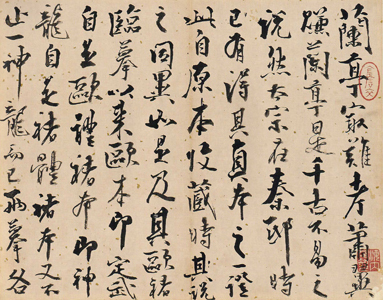 亭最難考蕭翼
賺蘭亭是千古不易之
說然太宗在秦邸時
已有得其真本之一證
此自原本收藏時其說
之同異如是及其歐褚
臨摹以來歐本即定武
自是歐體褚本即神
龍自是褚體褚本又不
止一神龍而已兩摹各